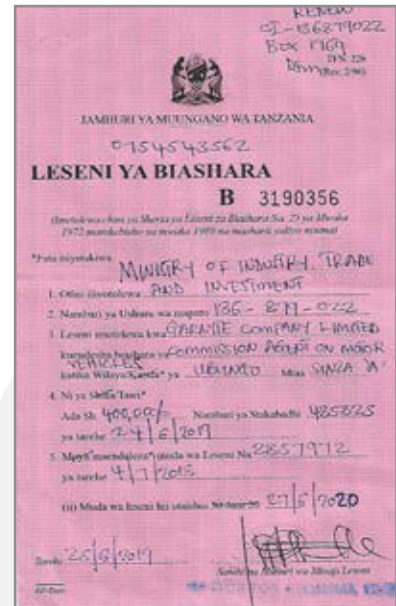 RENEW
01-136879022
BOX 1769
Dsm TFN. 226
(Rev. 2/90)
JAMHURI YA MUUNGANO WA TANZANIA
0754543562
LESENI YA BIASHARA
B 3190356
(Imetolewa chini ya Sheria ya Leseni za Biashara Na. 25 ya Mwaka
1972 marekebisho ya mwaka 1980 na masharti yaliyo nyuma)
*Futa isiyotakiwa
MINISTRY OF INDUSTRY, TRADE
1. Ofisi iliyotolewa AND INVESTMENT
2. Nambari ya Ushuru wa mapato 136-879-022
3. Leseni imetolewa kwa COMPANY LIMITED
kuendesha biashara ya COMMISSION AGENT ON MOTOR
VEHICLES
katika Wilaya/Kanda* ya UBUNGO Mtaa SINZA 'A'
4. Ni ya Shina/Tawi*
Ada Sh. 400,000/= Nambari ya Stakabadhi 485825
ya tarehe 24/6/2019
5. Mpya/maendelezo* muda wa Leseni Na 2857972
ya tarehe 4/7/2018
(ii) Muda wa leseni hii utaishia 30 June 20 27/6/2020
Tarehe 26/6/2019
Sahihi na Muhuri wa Mtoaji Leseni